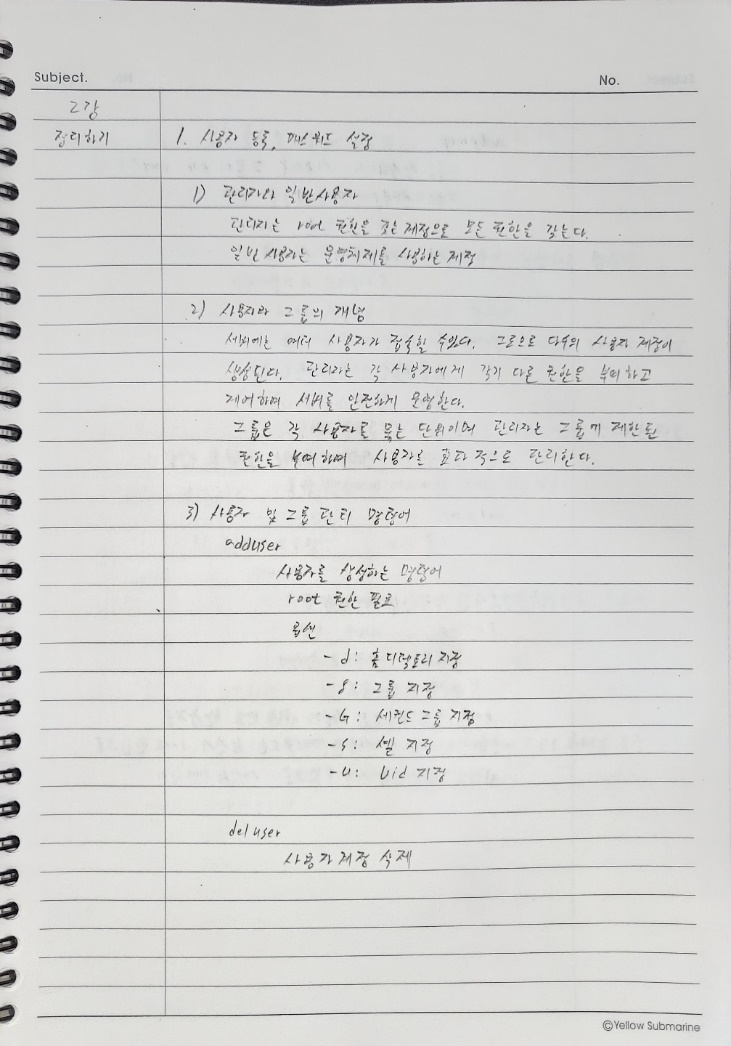 Subject.
No.
2강
정리하기
1. 사용자 등록, 패스워드 설정
1) 관리자와 일반사용자
관리자는 root 권한을 갖는 계정으로 모든 권한을 갖는다.
일반 사용자는 운영체제를 사용하는 계정
2) 사용자와 그룹의 개념
서버에는 여러 사용자가 접속할 수있다. 그러므로 다수의 사용자 계정이
생성된다. 관리자는 각 사용자에게 각기 다른 권한을 부여하고
제어하며 서버를 안전하게 운영한다.
그룹은 각 사용자를 묶는 단위이며 관리자는 그룹에 제한된
권한을 부여하여 사용자를 효과적으로 관리한다.
3) 사용자 및 그룹 관리 명령어
adduser
사용자를 생성하는 명령어
root 권한 필요
옵션
-d: 홈디렉토리 지정
-g: 그룹 지정
-G: 세컨드 그룹 지정
-s: 셸 지정
-u: Uid 지정
deluser
사용자 계정 삭제
©Yellow Submarine